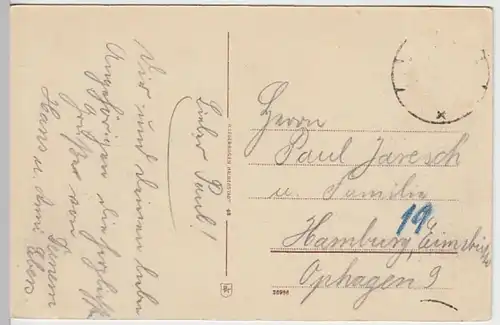 Lieber Paul!
Dir und Deinen lieben
Angehörigen die herzlichsten
Grüße von
Deinem
Hans u. dem
Herrn
Paul Jaresch
u. Familie
19
Hamburg, Eimsbüttel
Ophagen 9